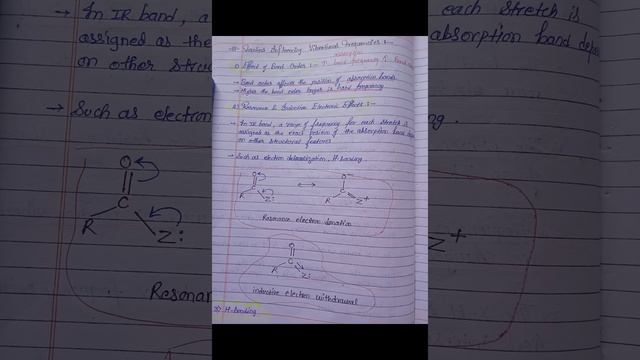 → In IR band, a
assigned as the
on other struc
→ Such as electron
O
C
R
Z:
Resonan
Factors Influencing Vibrational Frequencies :-
1) Effect of Bond Order :-
→ Bond order affects the position of absorption bands
→ Higher the bond order larger is band frequency
2) Resonance & Inductive Electronic Effects :-
→ In IR band, a range of frequency for each stretch is
assigned as the exact position of the absorption band depends
on other structural features
→ Such as electron delocalization, H-bonding.
O
C
R
Z:
↔
O
C
R
Z+
Resonance electron donation
O
C
R
Z:
inductive electron withdrawal
3) H-bonding
each stretch is
absorption band depe
Z+